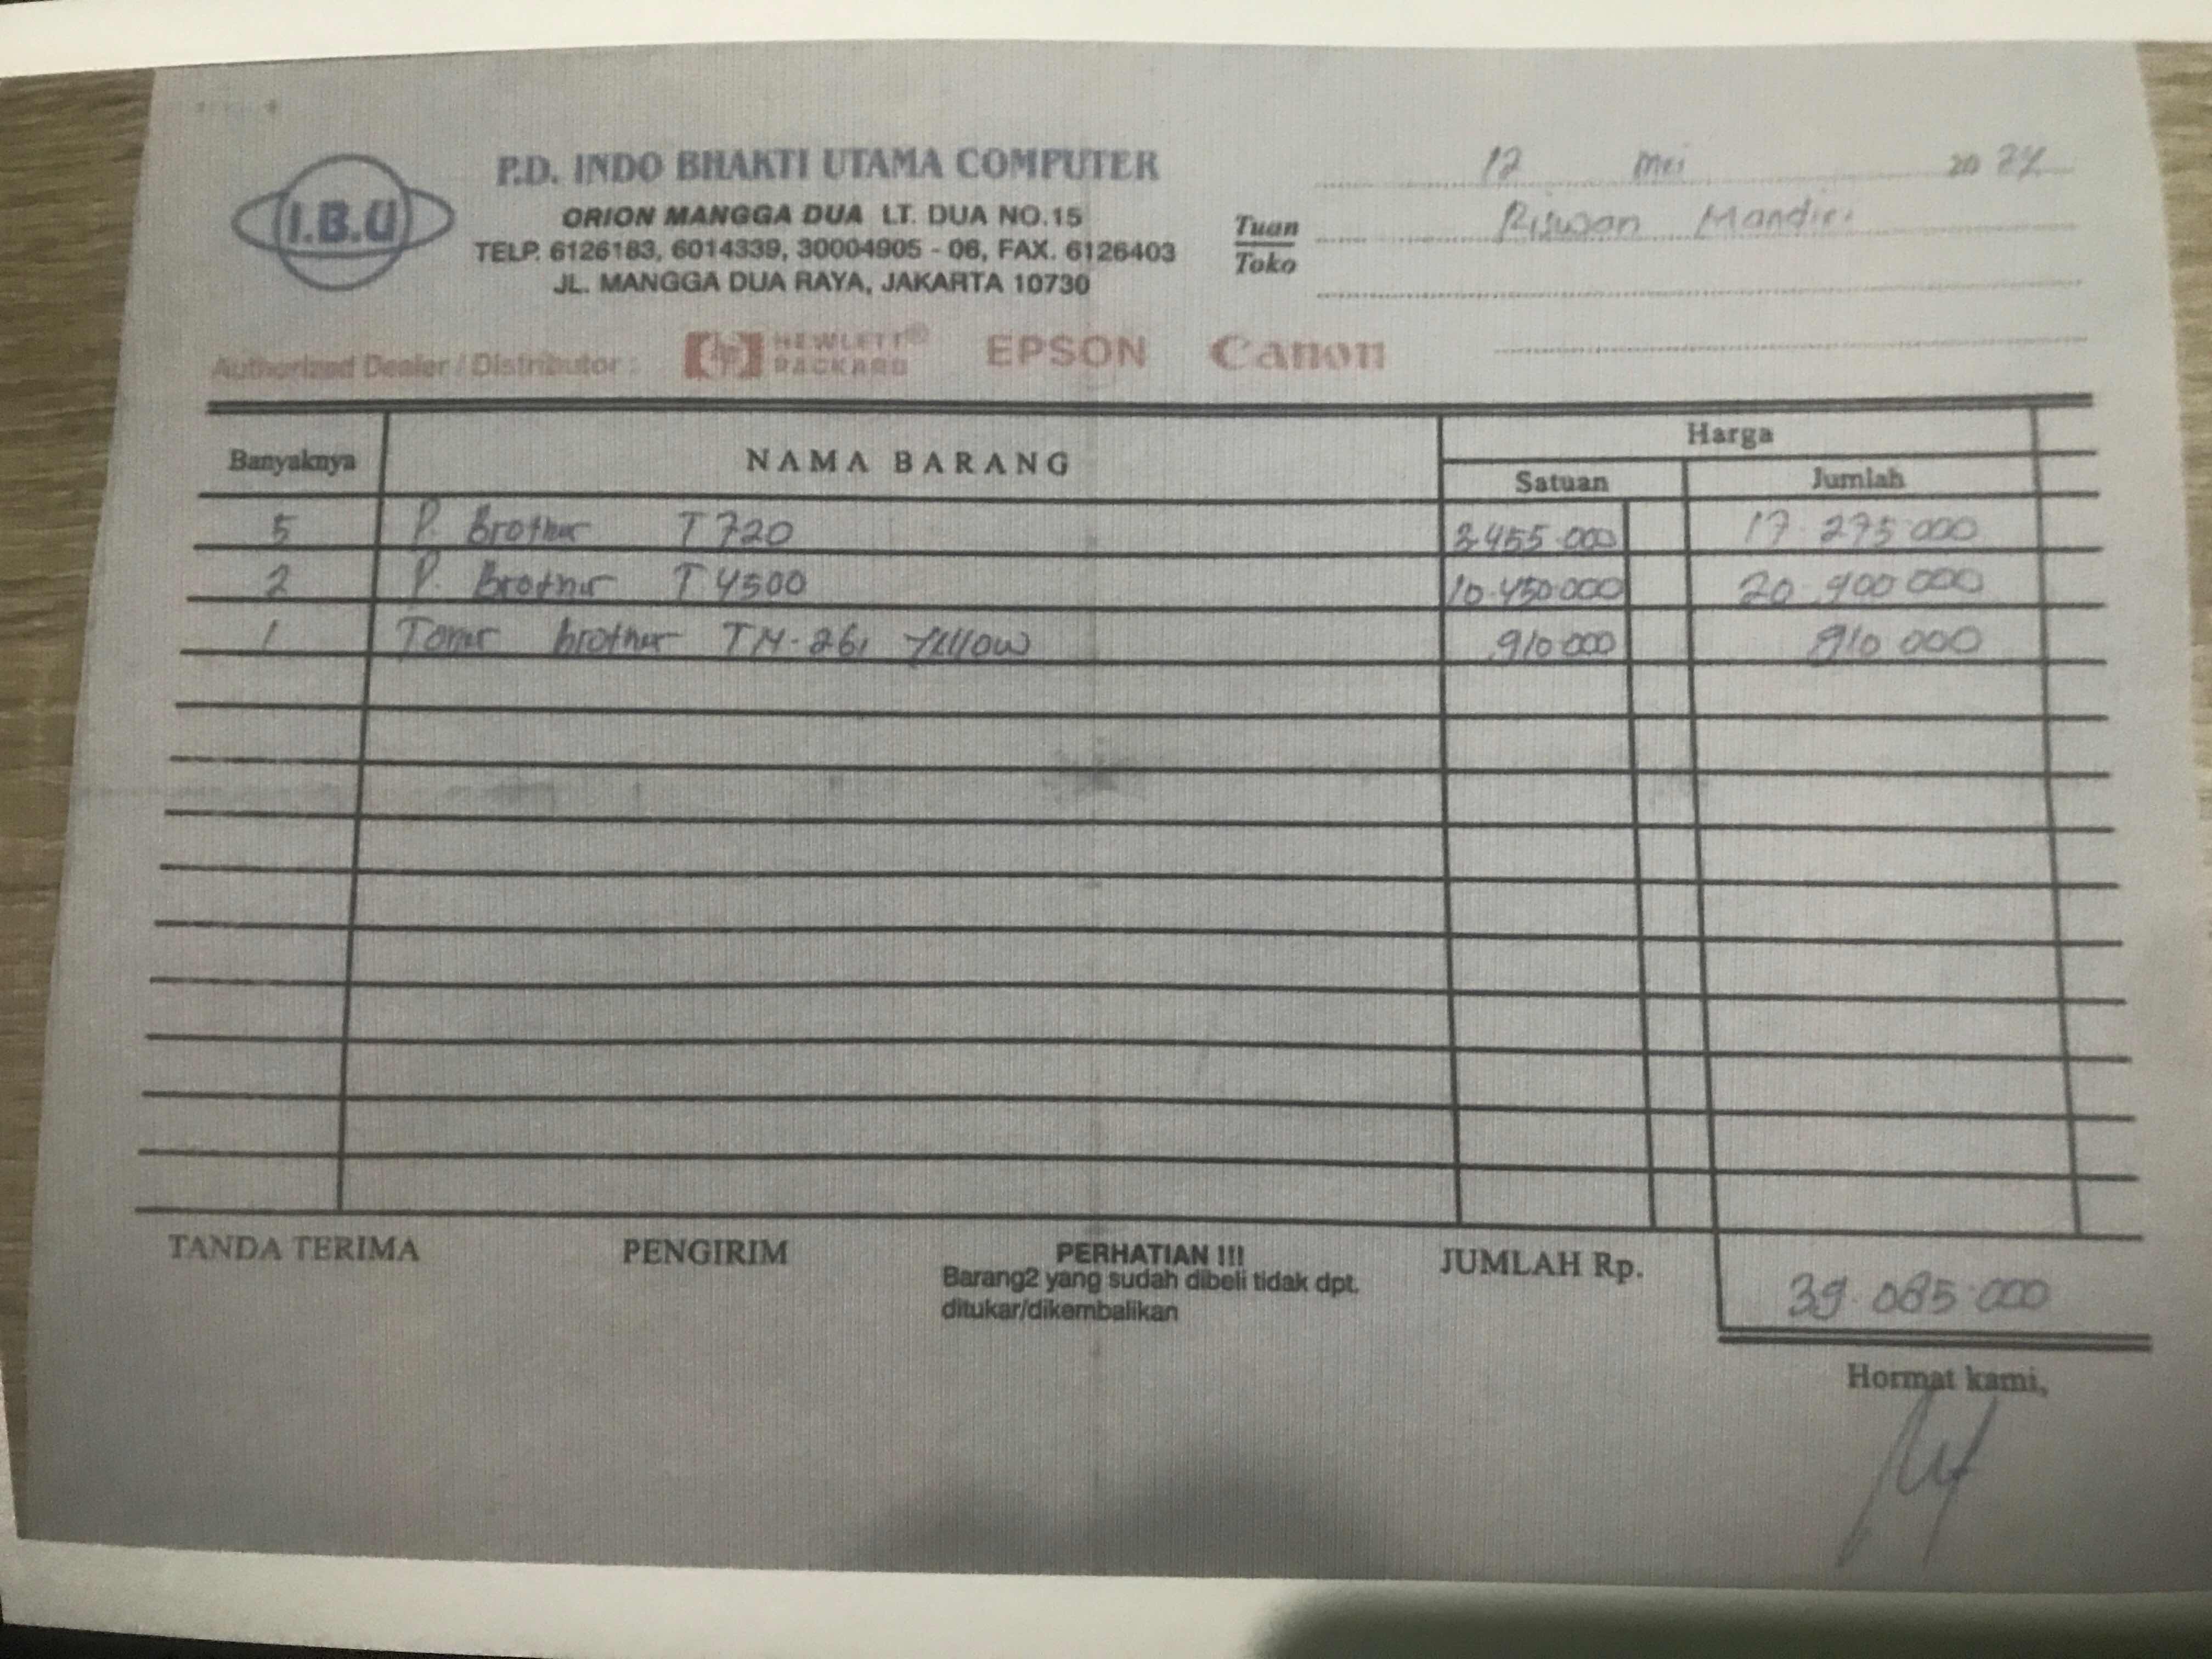 I.B.U
P.D. INDO BHAKTI UTAMA COMPUTER
ORION MANGGA DUA LT. DUA NO.15
TELP. 6126183, 6014339, 30004905 - 06, FAX. 6126403
JL. MANGGA DUA RAYA, JAKARTA 10730
12 Mei 20 24
Tuan Riswan Mandiri
Toko
Authorized Dealer / Distributor : hp HEWLETT® PACKARD EPSON Canon
Banyaknya NAMA BARANG Harga
Satuan Jumlah
5 P. Brother T720 3.455.000 17.275.000
2 P. Brother T4500 10.450.000 20.900.000
1 Toner brother TN-261 Yellow 910.000 910.000
TANDA TERIMA PENGIRIM PERHATIAN !!! JUMLAH Rp. 39.085.000
Barang2 yang sudah dibeli tidak dpt.
ditukar/dikembalikan
Hormat kami,